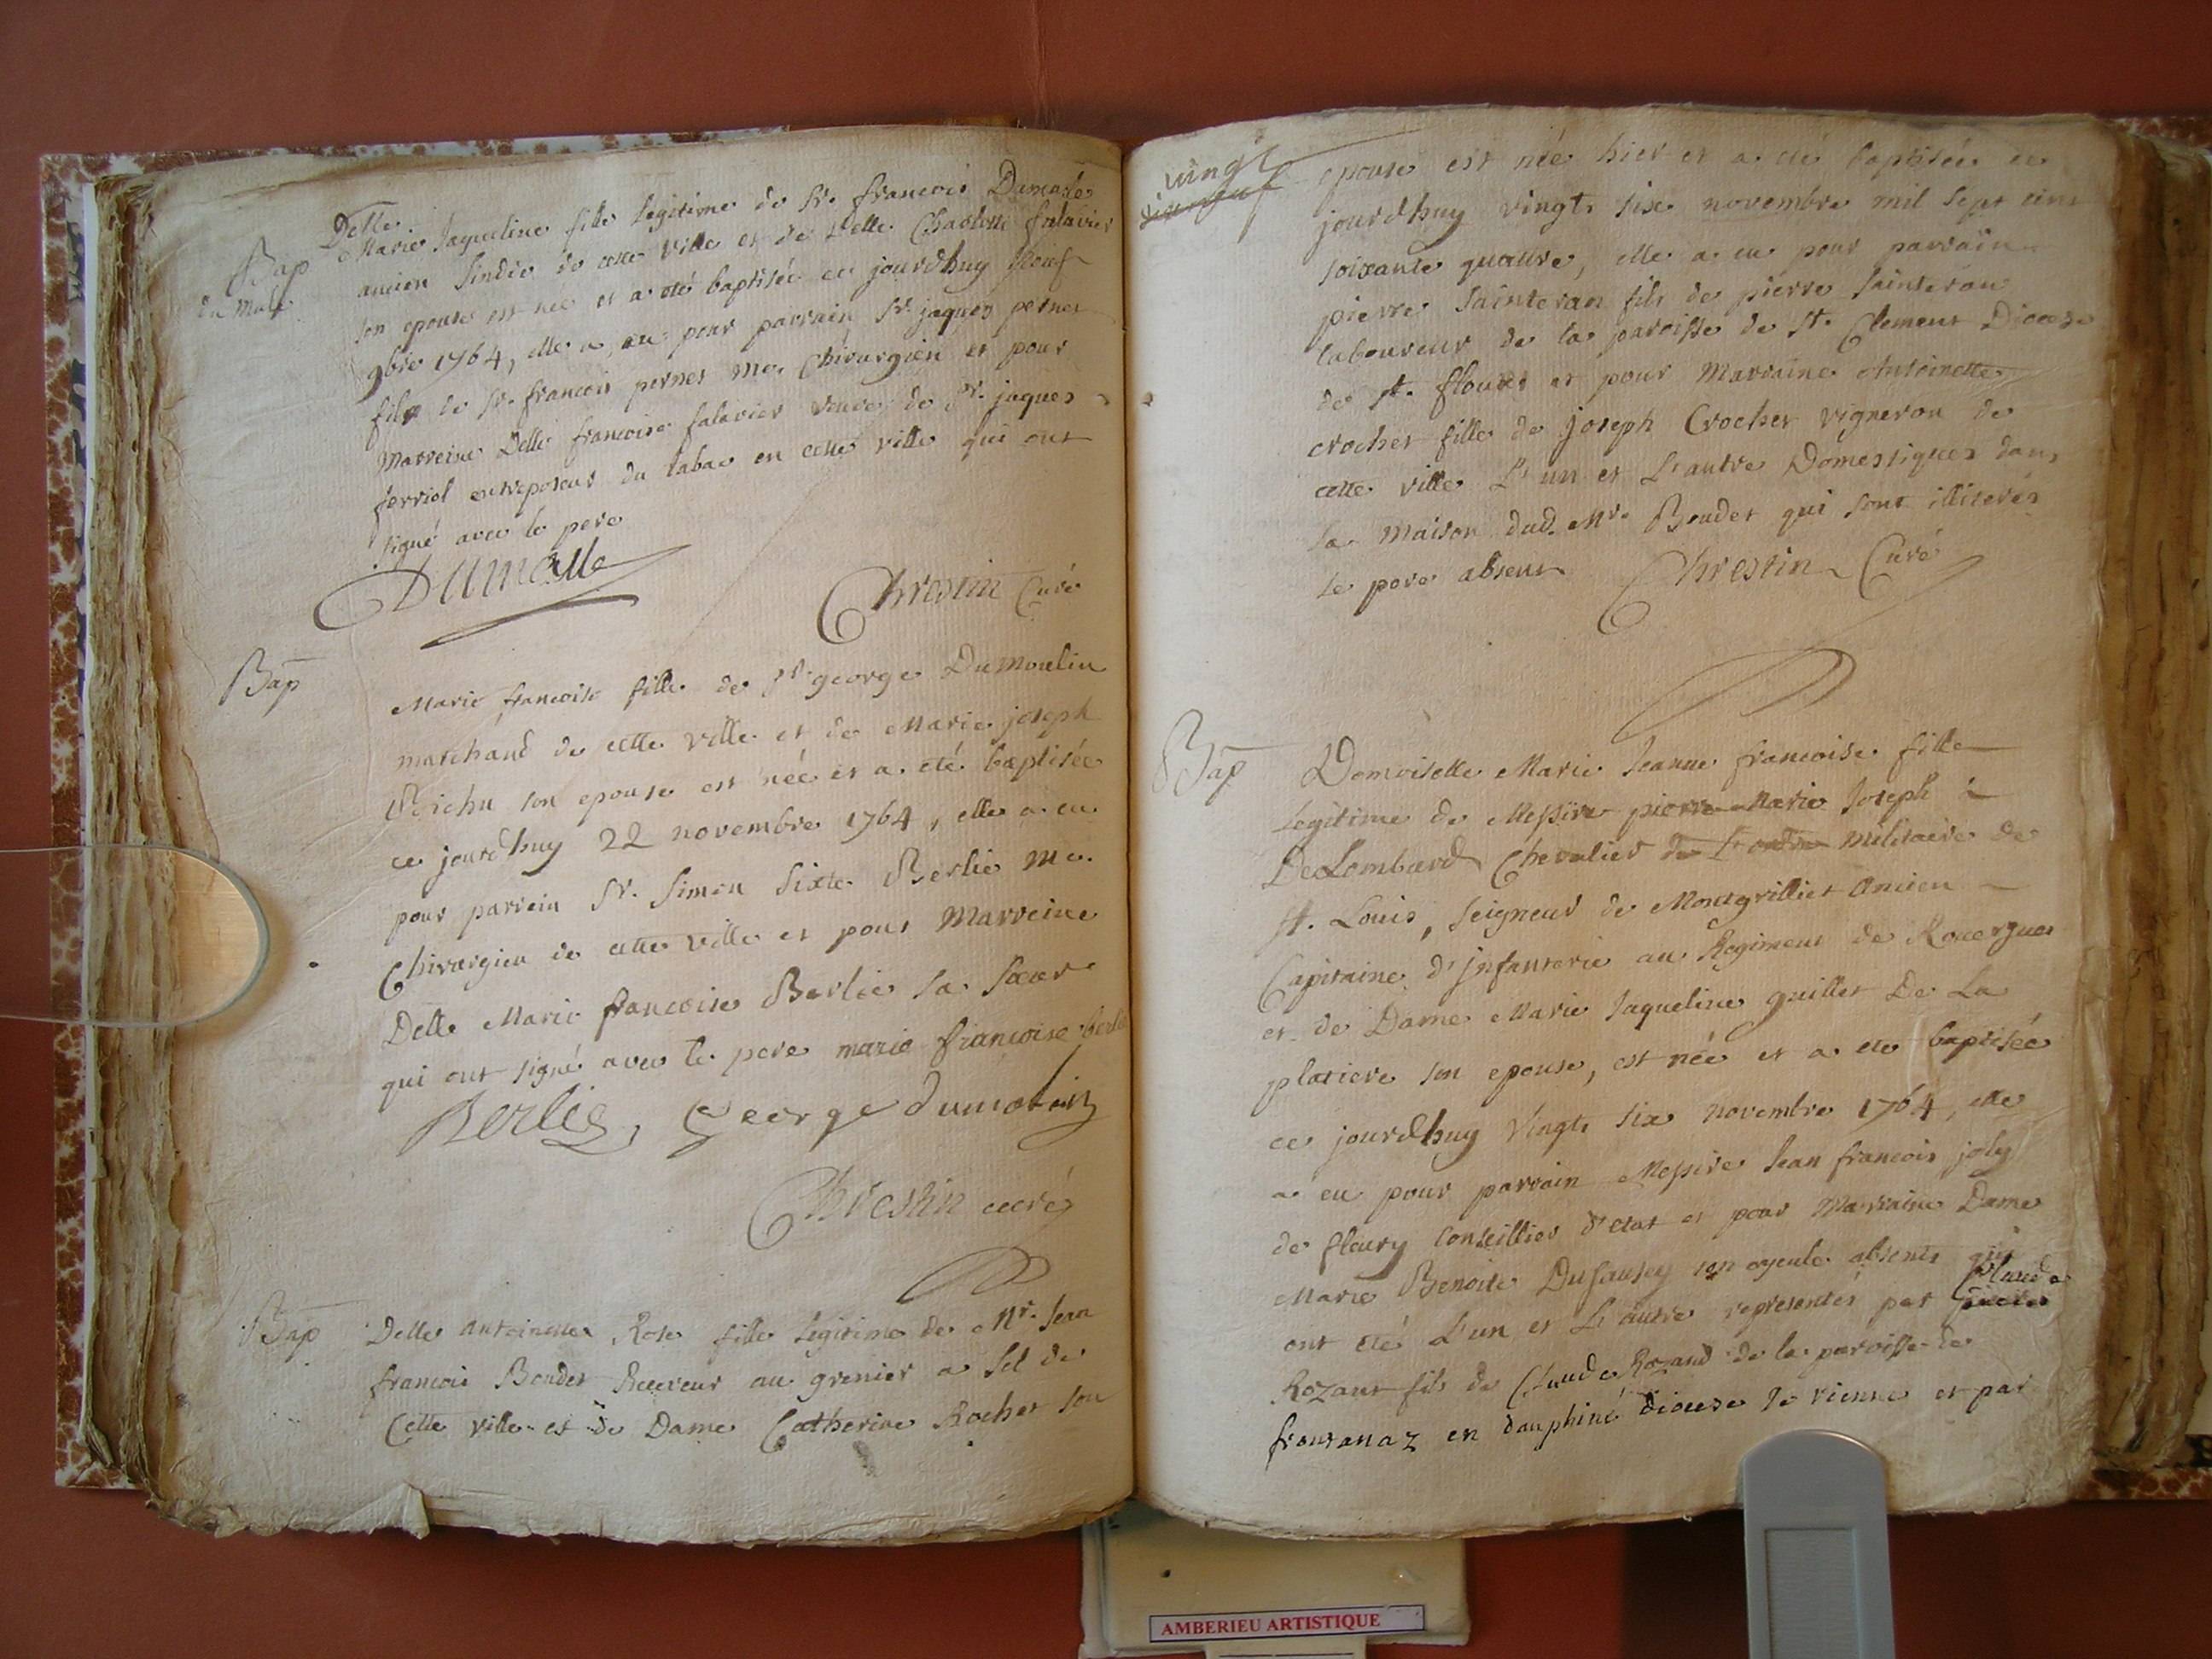 Bap
Delle
Marie Jaqueline fille legitime de Sr. francois Dumaste
ancien sindic de cette ville et de Delle Charlotte falavier
son epouse est née et a eté baptisée ce jourdhuy neuf
9bre 1764, elle a eu pour parrain Sr. jaques pernet
fils de Sr. francois pernet me. Chirurgien et pour
Marreine Delle francoise falavier veuve de Sr. jaques
ferriol entreposeur du tabac en cette ville qui ont
signé avec le pere
Chrestin Curé
Bap
Marie francoise fille de Sr. george Dumoulin
marchand de cette ville et de Marie joseph
son epouse est née et a eté baptisée
ce jourdhuy 22 novembre 1764, elle a eu
pour parrein Sr. Simon Sixte Berlie me.
Chirurgien de cette ville et pour Marreine
Delle Marie francoise Berlie sa soeur
qui ont signé avec le pere marie françoise berlie
Berlie, george dumolin
Chrestin curé
Bap
Delle Antoinette Rose fille legitime de Mr. Jean
francois Boudet Receveur au grenier a Sel de
Cette ville et de Dame Catherine Rocher son
vingt
epouse est née hier et a eté baptisée ce
jourdhuy vingt six novembre mil sept cent
soixante quatre, elle a eu pour parrain
pierre Sainteran fils de pierre Sainteran
laboureur de la paroisse de St. Clement Diocese
de St. flour et pour Marraine Antoinette
crochet fille de joseph Crochet vigneron de
cette ville L'un et L'autre Domestiques dans
la maison dud. Mr. Boudet qui sont illiterés
le pere absent Chrestin Curé
Bap
Demoiselle Marie Jeanne francoise fille
Legitime de Messire pierre Marie Joseph
De Lombard Chevalier de L'ordre Militaire de
St. Louis, Seigneur de Montgrillet Ancien
Capitaine d'Infanterie au Regiment de Rouergue
et de Dame Marie Jaqueline guillet De La
platiere son epouse, est née et a eté baptisée
ce jourdhuy Vingt six novembre 1764, elle
a eu pour parrain Messire Jean francois joly
de fleury Conseillier d'etat et pour Marraine Dame
Marie Benoite Dufausey son ayeule absents qui
ont eté L'un et L'autre representés par Claude
Rozant fils de Claude Rozand de la paroisse de
frontanaz en dauphiné diocese de vienne et par
AMBERIEU ARTISTIQUE